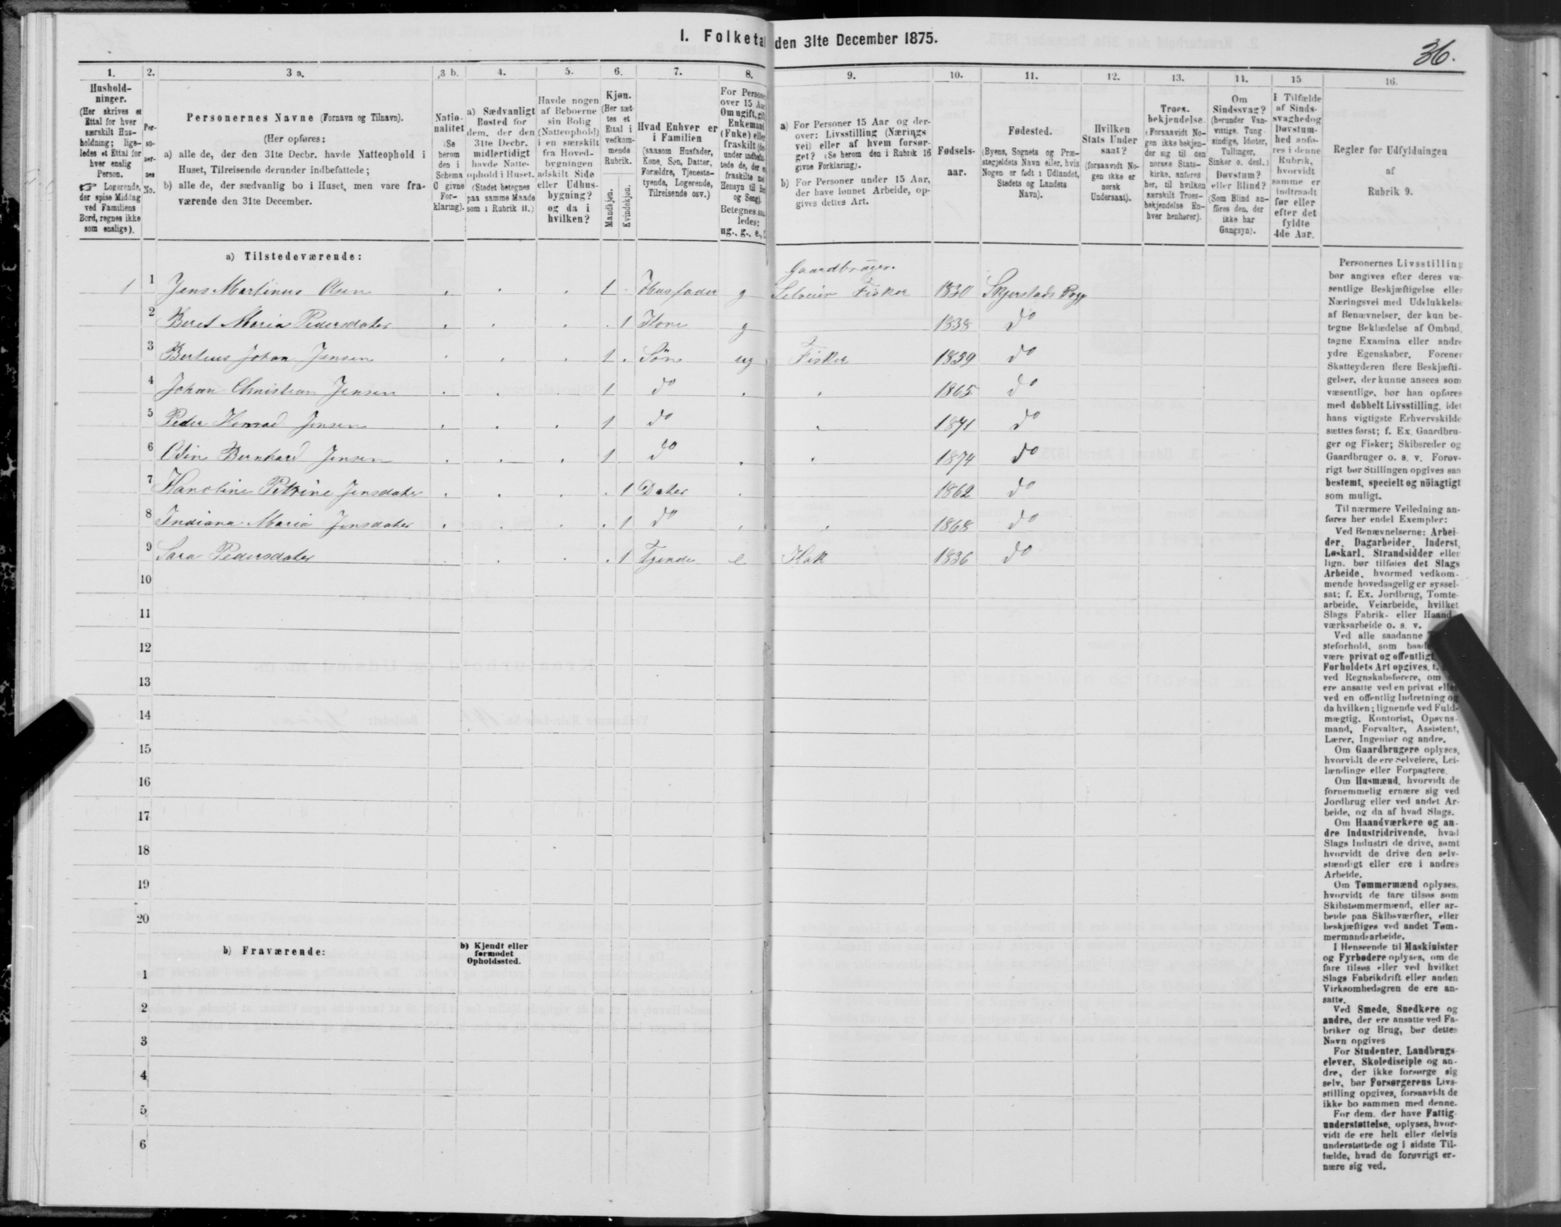 I. Folketal den 31te December 1875.
36.
1. 2. 3 a. 3 b. 4. 5. 6. 7. 8. 9. 10. 11. 12. 13. 14. 15 16.
Hushold-
ninger.
(Her skrives et
Ettal for hver
særskilt Hus-
holdning; lige-
ledes et Ettal for
hver enslig
Person.
☞ Logerende,
der spise Middag
ved Familiens
Bord, regnes ikke
som enslige).
Per-
so-
ner-
nes
No.
Personernes Navne (Fornavn og Tilnavn).
(Her opføres:
a) alle de, der den 31te Decbr. havde Natteophold i
Huset, Tilreisende derunder indbefattede;
b) alle de, der sædvanlig bo i Huset, men vare fra-
værende den 31te December.
Natio-
nalitet
(Se
herom
den i
Schema
O givne
For-
klaring).
a) Sædvanligt
Bosted for
dem, der den
31te Decbr.
midlertidigt
havde Natte-
ophold i Huset.
(Stedet betegnes
paa samme Maade
som i Rubrik 11.)
Havde nogen
af Beboerne
sin Bolig
(Natteophold)
i en særskilt
fra Hoved-
bygningen
adskilt Side
eller Udhus-
bygning?
og da i
hvilken?
Kjøn.
(Her sæt-
tes et
Ettal i
vedkom-
mende
Rubrik.
Mandkjøn.
Kvindekjøn.
Hvad Enhver er
i Familien
(saasom Husfader,
Kone, Søn, Datter,
Forældre, Tjeneste-
tyende, Logerende,
Tilreisende osv.)
For Personer
over 15 Aar
Om ugift, gift,
Enkemand
(Enke) eller
fraskilt
Betegnes saa-
ledes:
ug., g., e., f.
a) For Personer 15 Aar og der-
over: Livsstilling (Nærings
vei) eller af hvem forsør-
get? (Se herom den i Rubrik 16
givne Forklaring).
b) For Personer under 15 Aar,
der have lønnet Arbeide, op-
gives dettes Art.
Fødsels-
aar.
Fødested.
(Byens, Sognets og Præ-
stegjeldets Navn eller, hvis
Nogen er født i Udlandet,
Stedets og Landets
Navn).
Hvilken
Stats Under
saat?
(forsaavidt No-
gen ikke er
norsk
Undersaat).
Troes-
bekjendelse.
(Forsaavidt No-
gen ikke bekjen-
der sig til den
norske Stats-
kirke, anføres
her, til hvilken
særskilt Troes-
bekjendelse En-
hver henhører).
Om
Sindssvag?
(herunder Van-
vittige, Tung-
sindige, Idioter,
Tullinger,
Sinker o. desl.)
Døvstum?
eller Blind?
(Som Blind an-
føres den, der
ikke har
Gangsyn).
I Tilfælde
af Sinds-
svaghed og
Døvstum-
hed anfø-
res i denne
Rubrik,
hvorvidt
samme er
indtraadt
før eller
efter det
fyldte
4de Aar.
Regler før Udfyldningen
af
Rubrik 9.
a) Tilstedeværende:
Gaardbruger.
1 1 Jens Martinus Olsen 1 Husfader g Selveier Fisker 1830 Skjerstads Prgj
2 Beret Maria Pedersdater 1 Kone g 1838 do
3 Berteus Johan Jensen 1 Søn ug Fisker 1859 do
4 Johan Christian Jensen 1 do 1865 do
5 Peder Konrad Jensen 1 do 1871 do
6 Odin Bernhard Jensen 1 do 1874 do
7 Hansine Petrine Jensdater 1 Dater 1862 do
8 Indiana Maria Jensdater 1 do 1868 do
9 Sara Pedersdater 1 Tjende e 1836 do
10
11
12
13
14
15
16
17
18
19
20
b) Fraværende:
b) Kjendt eller
formodet
Opholdssted.
1
2
3
4
5
6
Personernes Livsstilling
bør angives efter deres væ-
sentlige Beskjæftigelse eller
Næringsvei med Udelukkelse
af Benævnelser, der kun be-
tegne Beklædelse af Ombud,
tagne Examina eller andre
ydre Egenskaber. Forener
Skatteyderen flere Beskjæfti-
gelser, der kunne ansees som
væsentlige, bør han opføres
med dobbelt Livsstilling, idet
hans vigtigste Erhvervskilde
sættes først; f. Ex. Gaardbru-
ger og Fisker; Skibsreder og
Gaardbruger o. s. v. Forøv-
rigt bør Stillingen opgives saa
bestemt, specielt og nöiagtigt
som muligt.
Til nærmere Veiledning an-
føres her endel Exempler:
Ved Benævnelserne: Arbei-
der, Dagarbeider, Inderst,
Løskarl, Strandsidder eller
lign. bør tilføies det Slags
Arbeide, hvormed vedkom-
mende hovedsagelig er syssel-
sat; f. Ex. Jordbrug, Tomte-
arbeide, Veiarbeide, hvilket
Slags Fabrik- eller Haand-
værksarbeide o. s. v.
Ved alle saadanne
steforhold, som baade
være privat og offentligt,
Forholdets Art opgives, f.
ved Regnskabsførere, om
ere ansatte ved en privat eller
ved en offentlig Indretning og
da hvilken; lignende ved Fuld-
mægtig, Kontorist, Opsyns-
mand, Forvalter, Assistent,
Lærer, Ingeniør og andre.
Om Gaardbrugere oplyses,
hvorvidt de ere Selveiere, Lei-
lændinge eller Forpagtere.
Om Husmænd, hvorvidt de
fornemmelig ernære sig ved
Jordbrug eller ved andet Ar-
beide, og da af hvad Slags.
Om Haandværkere og an-
dre Industridrivende, hvad
Slags Industri de drive, samt
hvorvidt de drive den selv-
stændigt eller ere i andres
Arbeide.
Om Tømmermænd oplyses,
hvorvidt de fare tilsøs som
Skibstømmermænd, eller ar-
beide paa Skibsværfter, eller
beskjæftiges ved andet Tøm-
mermandsarbeide.
I Henseende til Maskinister
og Fyrbødere oplyses, om de
fare tilsøs eller ved hvilket
Slags Fabrikdrift eller anden
Virksomhedsgren de ere an-
satte.
Ved Smede, Snedkere og
andre, der ere ansatte ved Fa-
briker og Brug, bør dettes
Navn opgives
For Studenter, Landbrugs-
elever, Skoledisciple og an-
dre, der ikke forsørge sig
selv, bør Forsørgerens Livs-
stilling opgives, forsaavidt de
ikke bo sammen med denne.
For dem, der have Fattig-
understøttelse, oplyses, hvor-
vidt de ere helt eller delvis
understøttede og i sidste Til-
fælde, hvad de forøvrigt er-
nære sig ved.